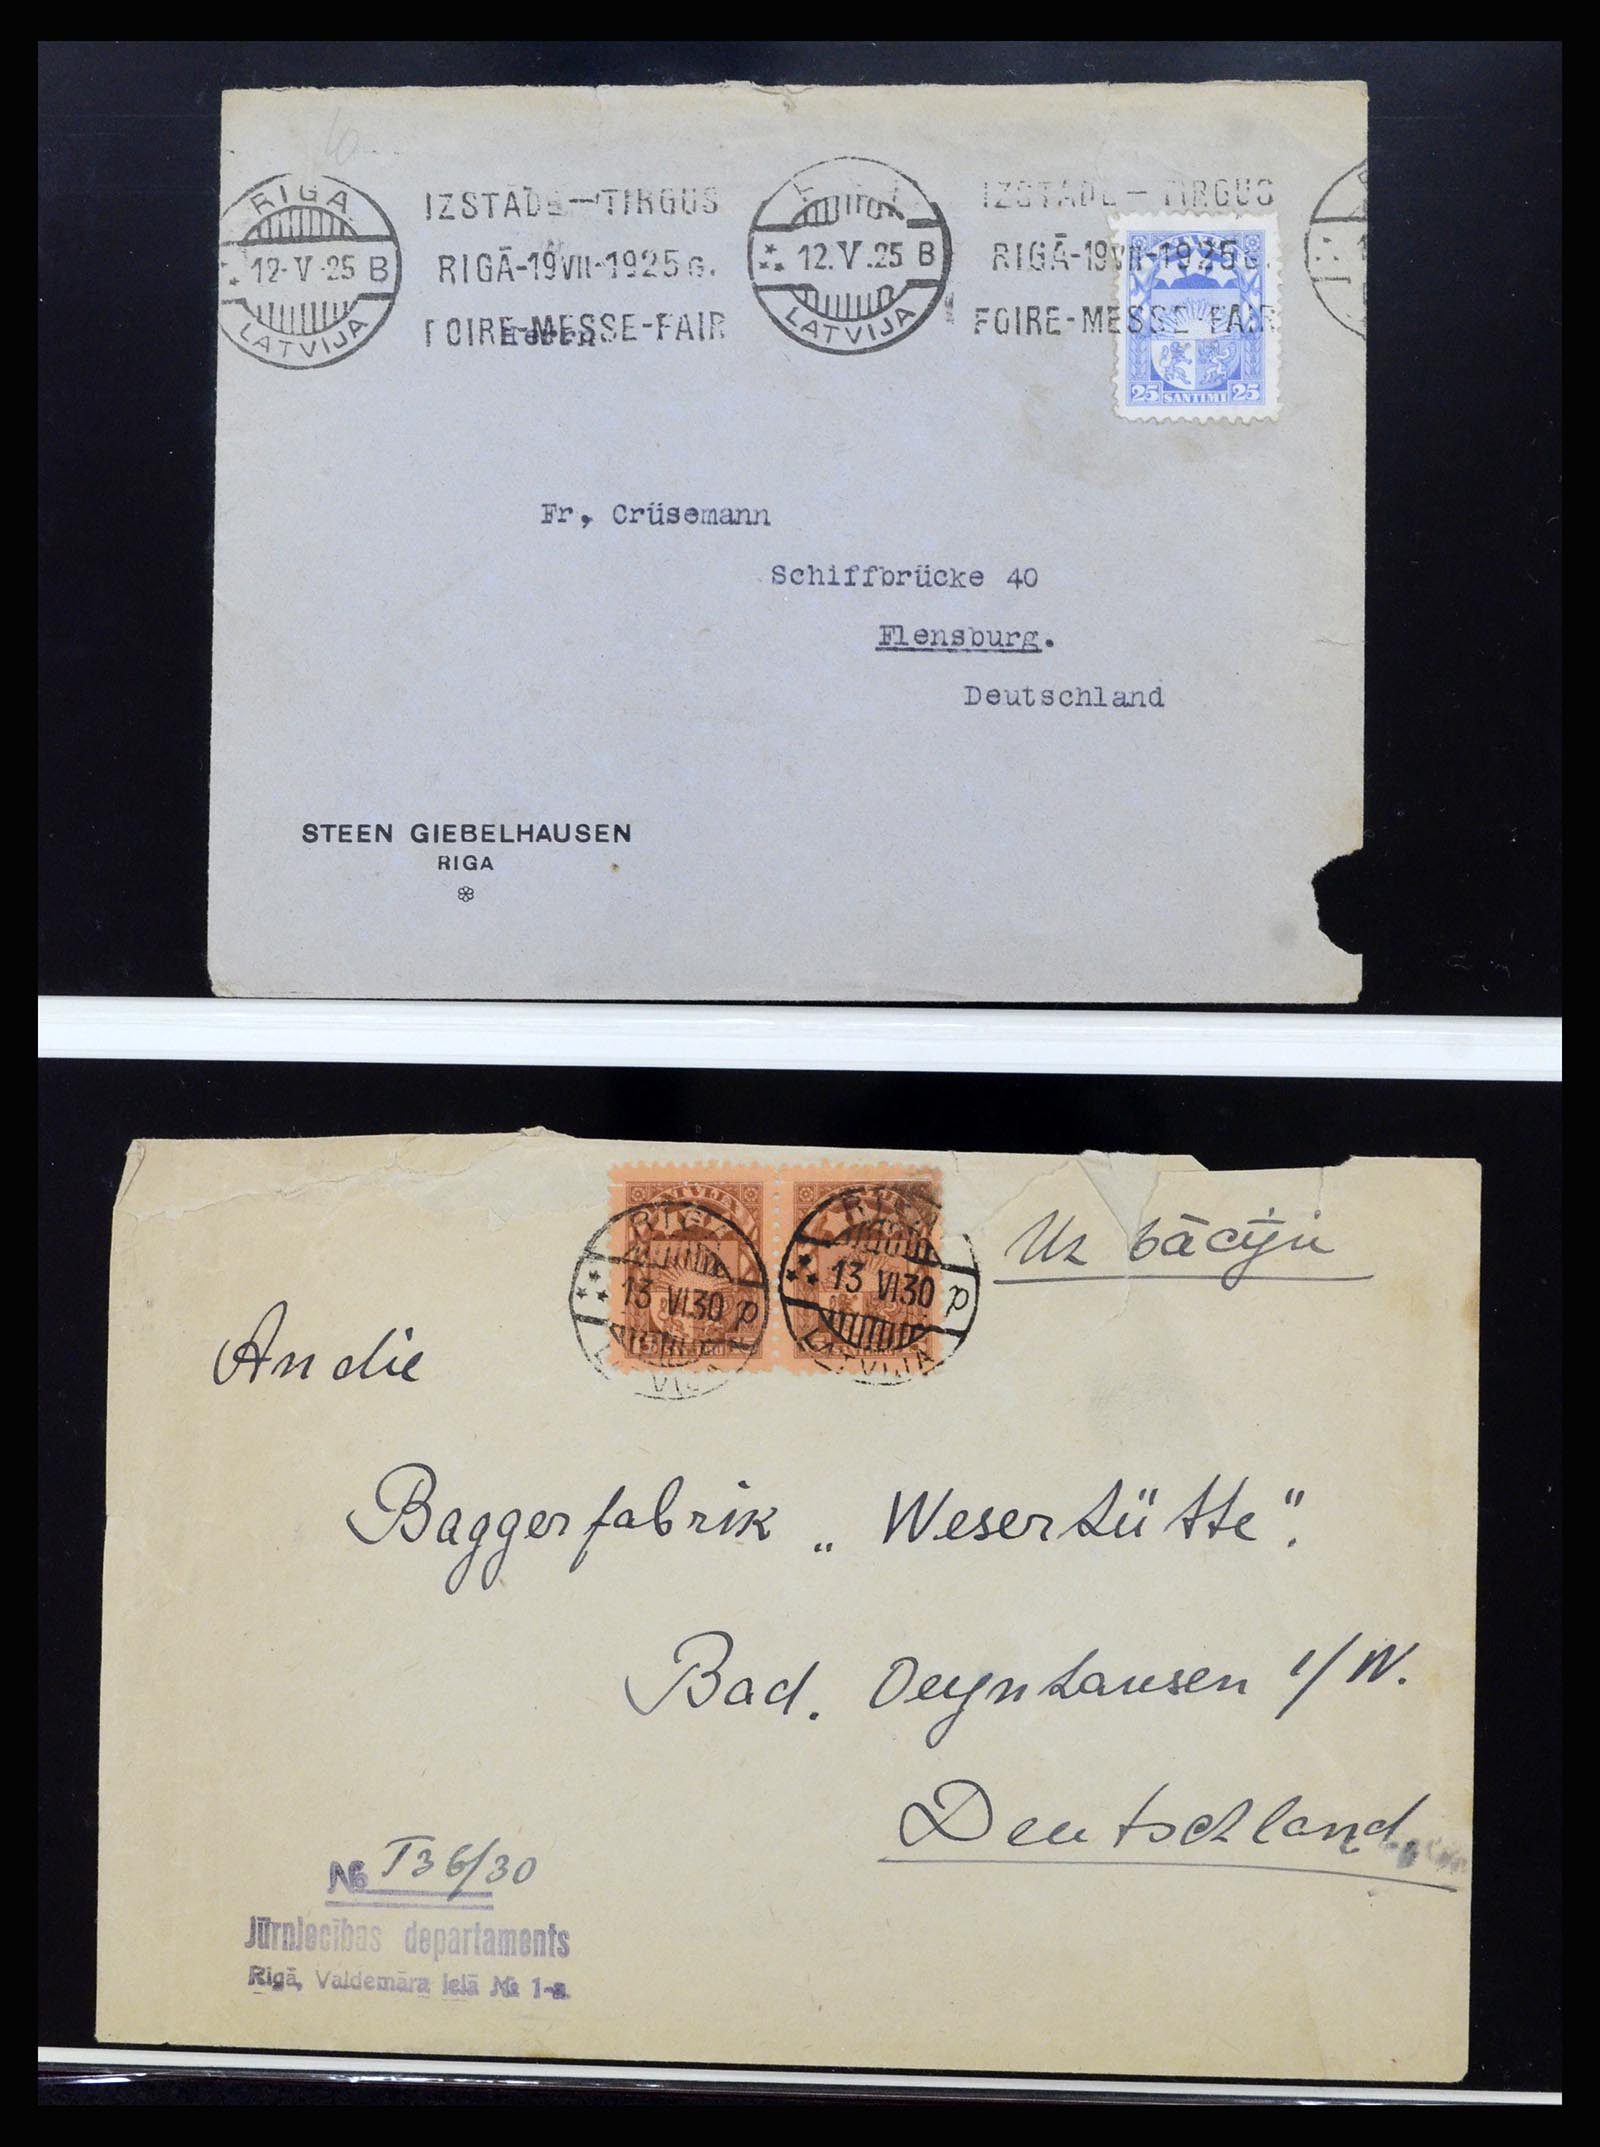 RIGA
12-V-25 B
LATVIJA
IZSTĀDE—TIRGUS
RIGĀ-19VII-1925 G.
FOIRE-MESSE-FAIR
12.V.25 B
LATVIJA
IZSTĀDE—TIRGUS
RIGĀ-19VII-1925 G.
FOIRE-MESSE-FAIR
25 SANTIMI 25
Fr, Crüsemann
Schiffbrücke 40
Flensburg.
Deutschland
STEEN GIEBELHAUSEN
RIGA
RIGA
13 VI 30 p
RIGA
13 VI 30 p
LATVIJA
Uz Vāciju
An die
Baggerfabrik „Weserhütte".
Bad. Oeynhausen i/W.
Deutschland
№ T36/30
Jūrniecības departaments
Rīgā, Valdemāra ielā № 1-a